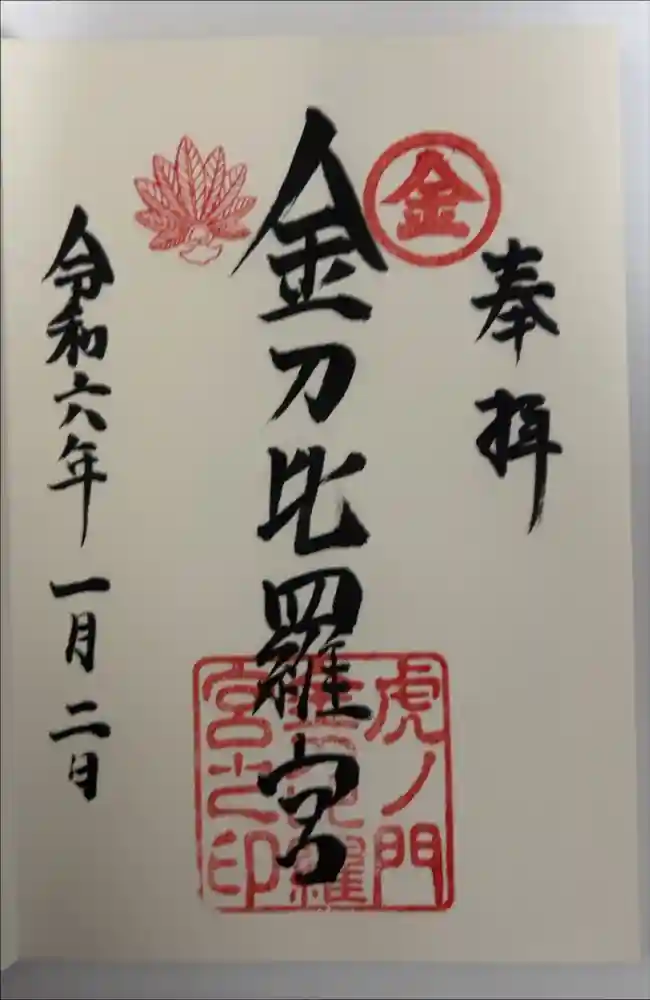 奉拝
金
金刀比羅宮
虎ノ門
金刀比羅
宮之印
令和六年一月二日